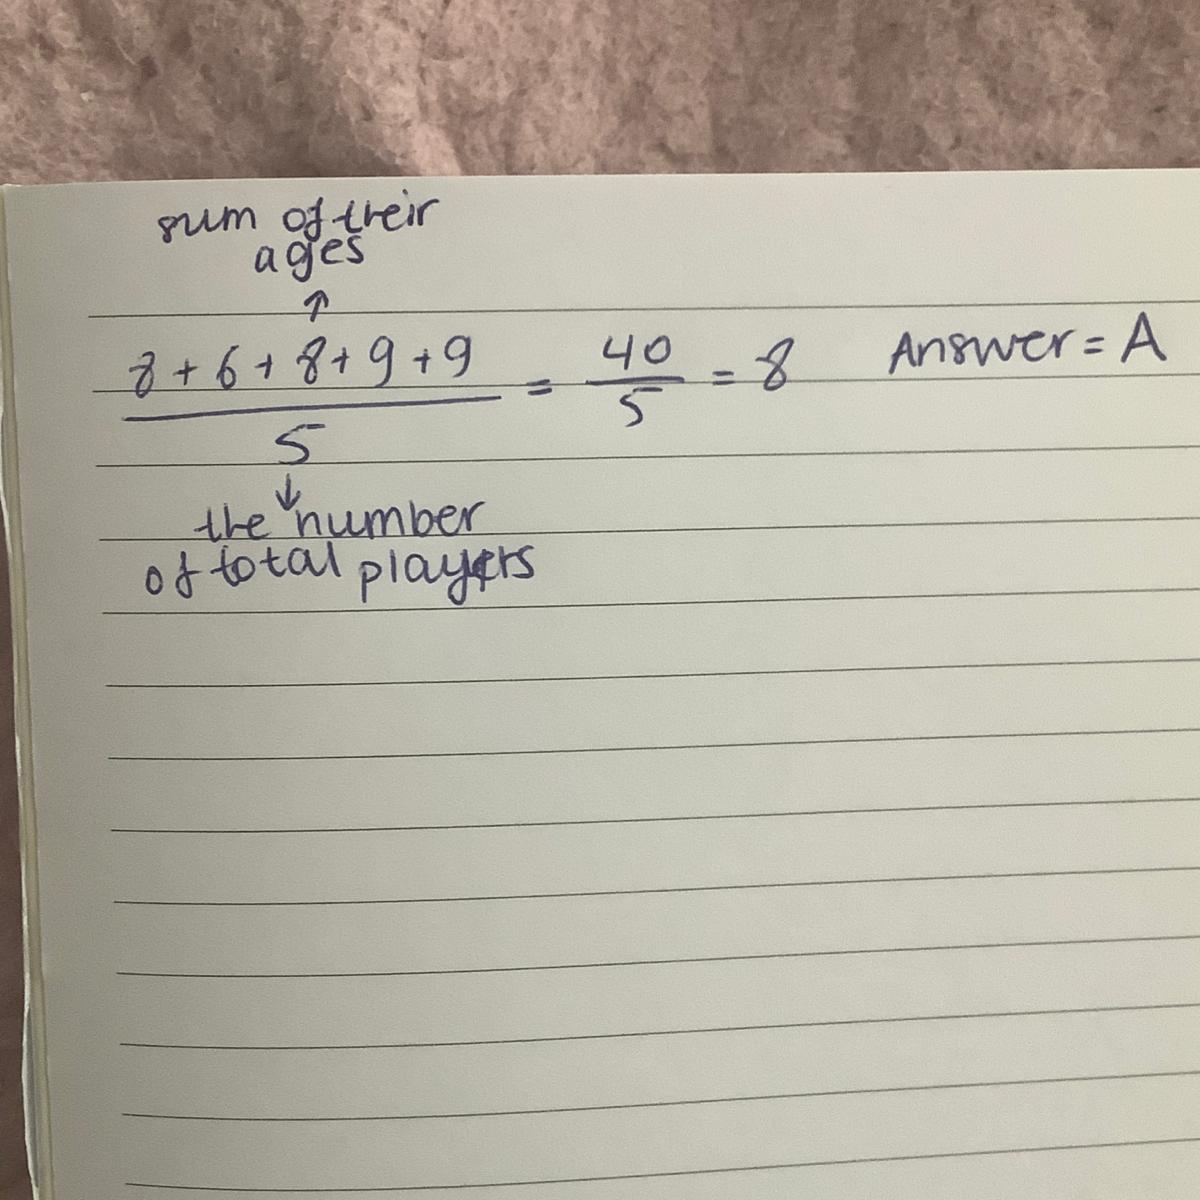 sum of their
ages
↑
8 + 6 + 8 + 9 + 9 = 40 = 8 Answer = A
5 5
↓
the number
of total players